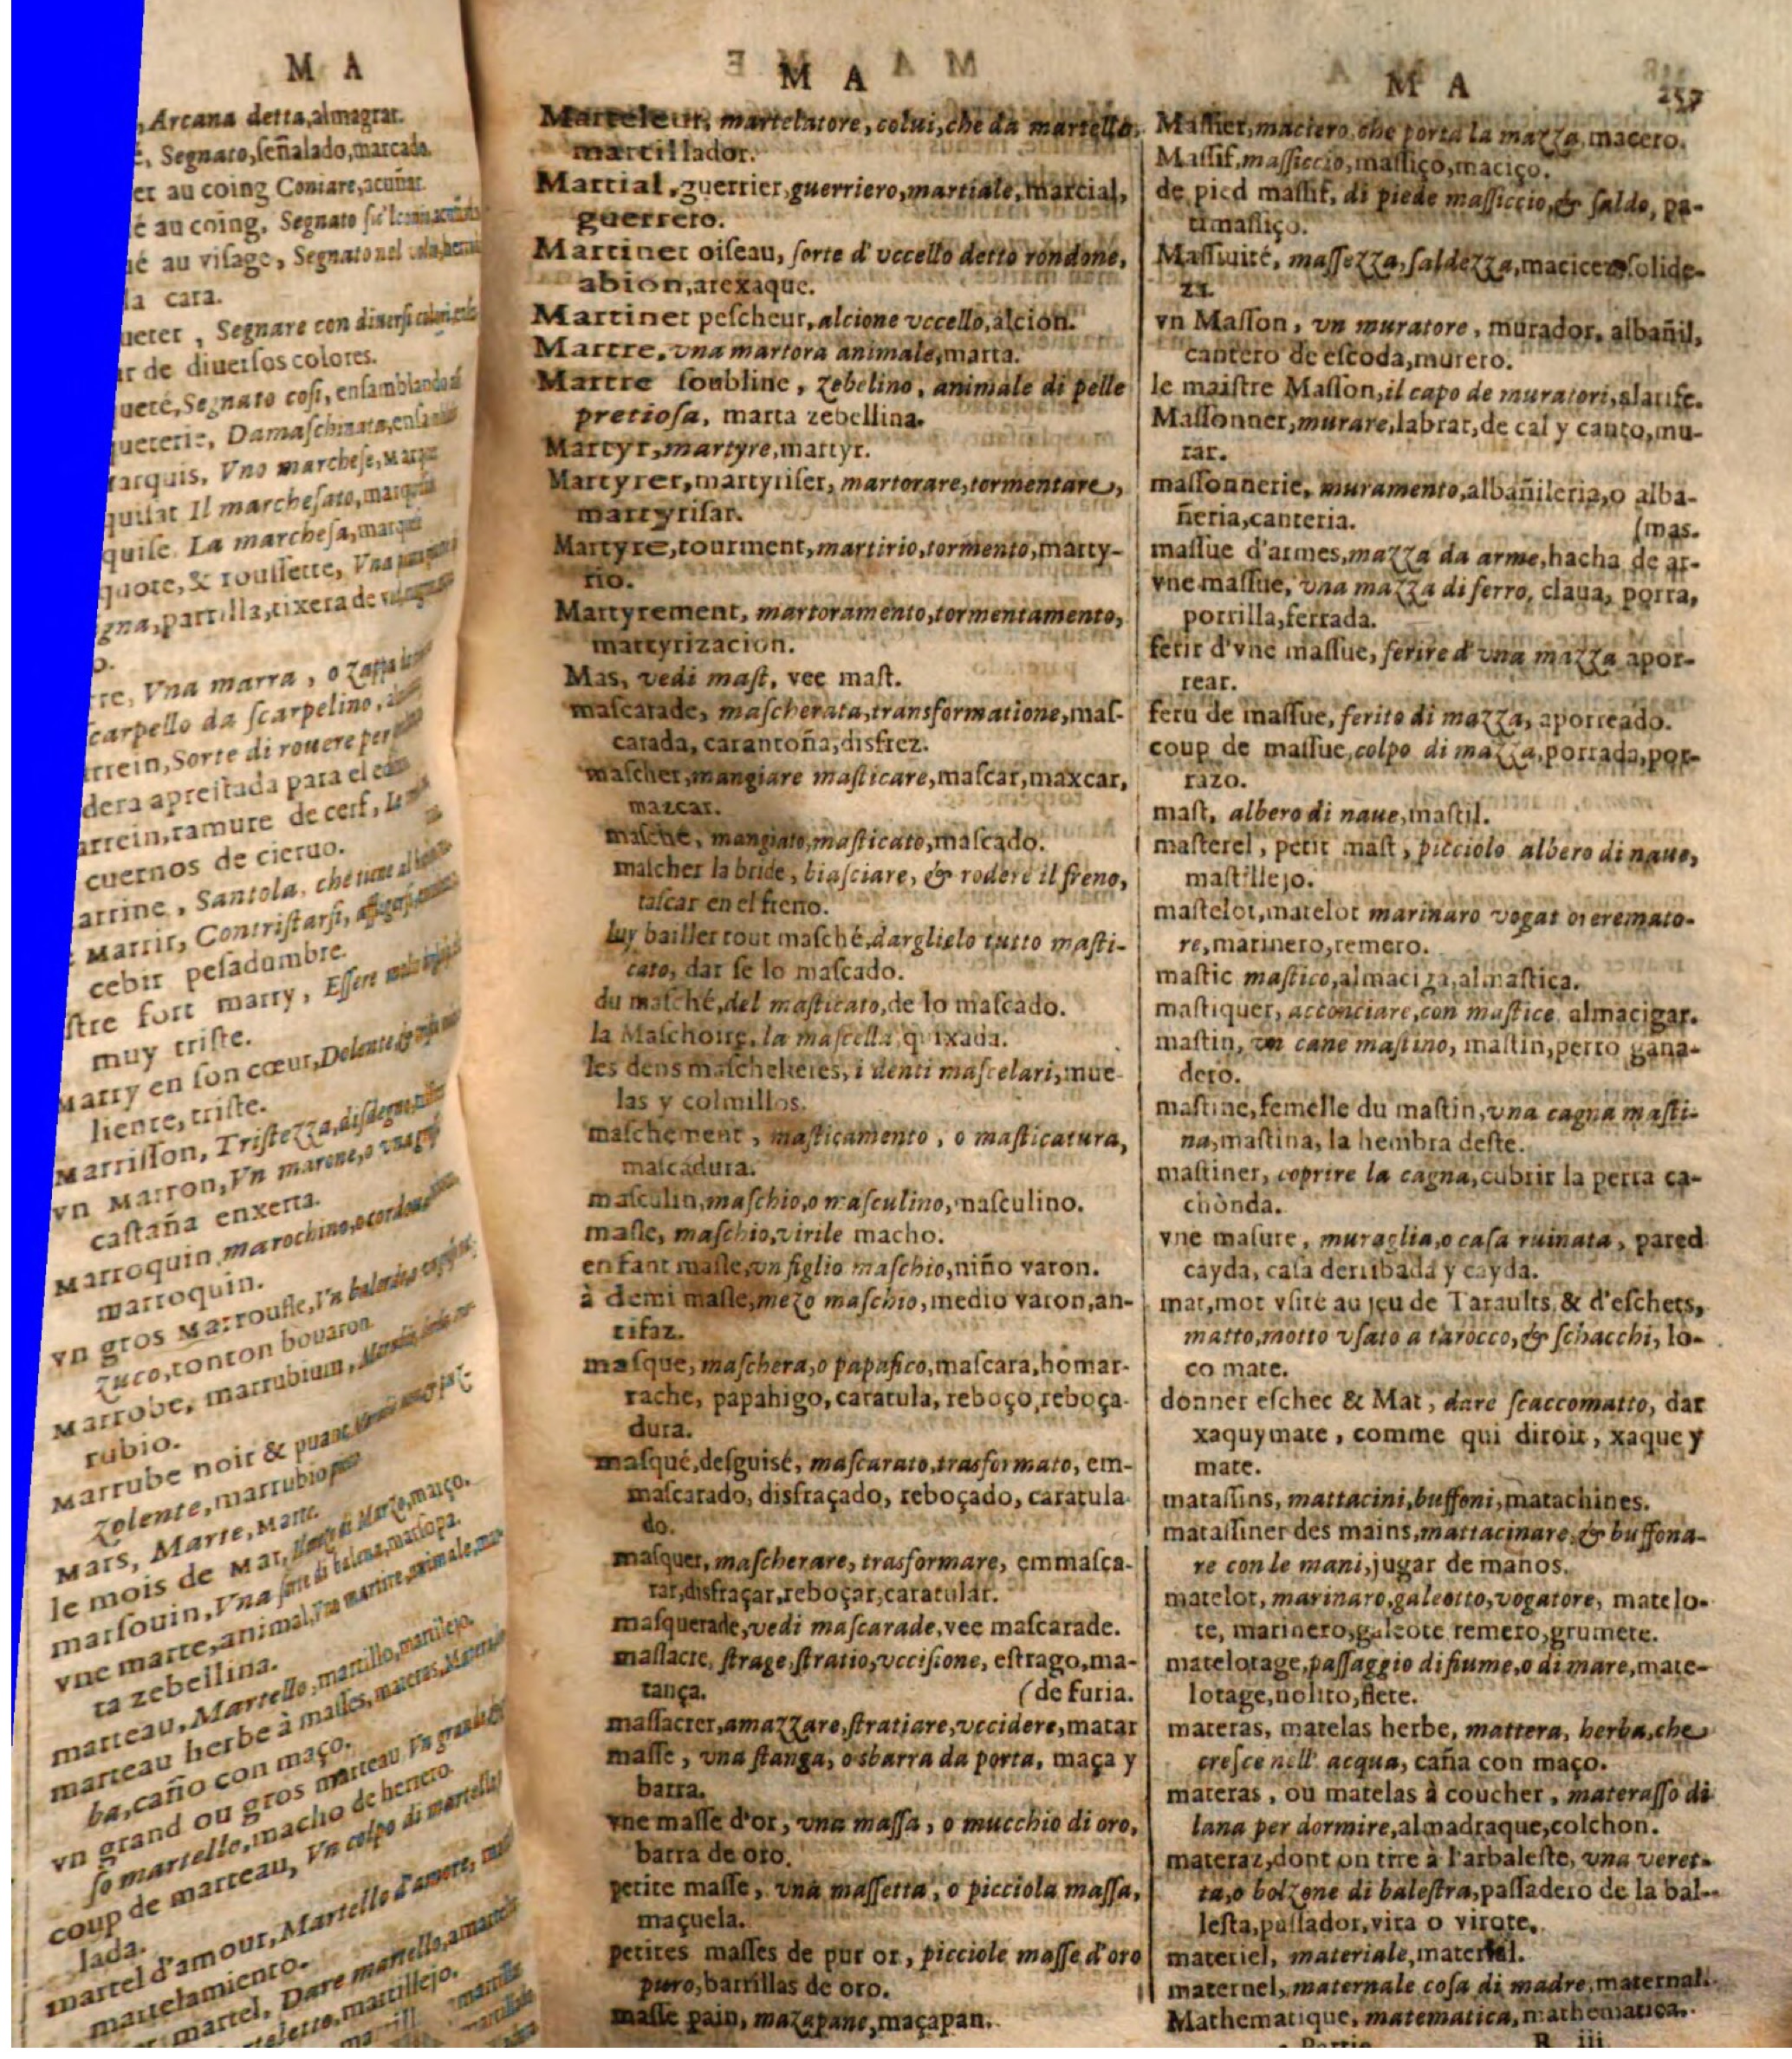 M A
, Arcana detta, almagrar.
Segnato, ſeñalado, marcado.
au coing Coniare, acuñar.
au coing, Segnato
au viſage, Segnato nel
cara.
Segnare con diuerſi
de diuerſos colores.
Segnato coſi, enſamblando
Damaſchinata,
Vno marcheſe,
Il marcheſato,
La marcheſa,
& rouſſette, Vna
partilla, tixera de
Vna marra, o zappa
ſcarpello da ſcarpelino,
Sorte di rouere per
apreſtada para el
ramure de cerf,
cuernos de cieruo.
Santola, che tiene
Marrir, Contriſtarſi,
cebir peſadumbre.
fort marry, Eſſere
muy triſte.
Marry en ſon cœur, Dolente
liente, triſte.
Marriſſon, Triſtezza, diſdegno,
vn Marron, Vn marone, o
caſtaña enxerta.
Marroquin, marochino, o cordoa
marroquin.
vn gros Marroufle, Vn
zuco, tonton bouaron.
Marrobe, marrubium,
rubio.
Marrube noir & puant,
zolente, marrubio
Mars, Marte, Marte.
le mois de Mar, Marzo, março.
marſouin, Vna ſorte di balena, marſopa.
vne marte, animal, Vna martire, animale,
ta zebellina.
marteau, Martello, martillo, martilejo.
marteau herbe à maſſes, materas,
ba, caño con maço.
vn grand ou gros marteau Vn
ſo martello, macho de herrero.
coup de marteau, Vn colpo di martello,
lada.
martel d'amour, Martello d'amore,
martelamiento.
martel, Dare martello,
martillejo.
M A
Marteleur, martelatore, colui, che da martello,
martillador.
Martial, guerrier, guerriero, martiale, marcial,
guerrero.
Martinet oiſeau, ſorte d'vccello detto rondone,
abion, arexaque.
Martinet peſcheur, alcione vccello, alcion.
Martre, vna martora animale, marta.
Martre ſoubline, zebelino, animale di pelle
pretioſa, marta zebellina.
Martyr, martyre, martyr.
Martyrer, martyriſer, martorare, tormentare,
martyriſar.
Martyre, tourment, martirio, tormento, marty-
rio.
Martyrement, martoramento, tormentamento,
martyrizacion.
Mas, vedi maſt, vee maſt.
maſcarade, maſcherata, transformatione, maſ-
carada, carantoña, disfrez.
maſcher, mangiare maſticare, maſcar, maxcar,
mazcar.
maſché, mangiato, maſticato, maſcado.
maſcher la bride, biaſciare, & rodere il freno,
taſcar en el freno.
luy bailler tout maſché, darglielo tutto maſti-
cato, dar ſe lo maſcado.
du maſché, del maſticato, de lo maſcado.
la Maſchoire, la maſcella, quixada.
les dens maſchelieres, i denti maſcelari, mue-
las y colmillos.
maſchement, maſticamento, o maſticatura,
maſcadura.
maſculin, maſchio, o maſculino, maſculino.
maſle, maſchio, virile macho.
enfant maſle, vn figlio maſchio, niño varon.
à demi maſle, mezo maſchio, medio varon, an-
tifaz.
maſque, maſchera, o papafico, maſcara, homar-
rache, papahigo, caratula, reboço, reboça-
dura.
maſqué, deſguisé, maſcarato, trasformato, em-
maſcarado, disfraçado, reboçado, caratula-
do.
maſquer, maſcherare, trasformare, emmaſca-
rar, disfraçar, reboçar, caratular.
maſquerade, vedi maſcarade, vee maſcarade.
maſſacre, ſtrage, ſtratio, vcciſione, eſtrago, ma-
tança. (de furia.
maſſacrer, amazzare, ſtratiare, vccidere, matar
maſſe, vna ſtanga, o sbarra da porta, maça y
barra.
vne maſſe d'or, vna maſſa, o mucchio di oro,
barra de oro.
petite maſſe, vna maſſetta, o picciola maſſa,
maçuela.
petites maſſes de pur or, picciole maſſe d'oro
puro, barrillas de oro.
maſſe pain, mazapane, maçapan.
M A
257
Maſſier, maciero che porta la mazza, macero.
Maſſif, maſſiccio, maſſiço, maciço.
de pied maſſif, di piede maſſiccio, & ſaldo, pa-
timaſſiço.
Maſſiuité, maſſezza, ſaldezza, macicez, ſolide-
za.
vn Maſſon, vn muratore, murador, albañil,
cantero de eſcoda, murero.
le maiſtre Maſſon, il capo de muratori, alarife.
Maſſonner, murare, labrar, de cal y canto, mu-
rar.
maſſonnerie, muramento, albañileria, o alba-
ñeria, canteria. (mas.
maſſue d'armes, mazza da arme, hacha de ar-
vne maſſue, vna mazza di ferro, claua, porra,
porrilla, ferrada.
ferir d'vne maſſue, ferire d'vna mazza apor-
rear.
feru de maſſue, ferito di mazza, aporreado.
coup de maſſue, colpo di mazza, porrada, por-
razo.
maſt, albero di naue, maſtil.
maſterel, petit maſt, picciolo albero di naue,
maſtillejo.
maſtelot, matelot marinaro vogator eremato-
re, marinero, remero.
maſtic maſtico, almaciga, almaſtica.
maſtiquer, acconciare, con maſtice almacigar.
maſtin, vn cane maſtino, maſtin, perro gana-
dero.
maſtine, femelle du maſtin, vna cagna maſti-
na, maſtina, la hembra deſte.
maſtiner, coprire la cagna, cubrir la perra ca-
chonda.
vne maſure, muraglia, o caſa ruinata, pared
cayda, caſa derribada y cayda.
mat, mot vſité au jeu de Taraults, & d'eſchets,
matto, motto vſato a tarocco, & ſchacchi, lo-
co mate.
donner eſchec & Mat, dare ſcaccomatto, dar
xaquymate, comme qui diroit, xaque y
mate.
mataſſins, mattacini, buffoni, matachines.
mataſſiner des mains, mattacinare, & buffona-
re con le mani, jugar de manos.
matelot, marinaro, galeotto, vogatore, matelo-
te, marinero, galeote remero, grumete.
matelotage, paſſaggio di fiume, o di mare, mate-
lotage, nolito, flete.
materas, matelas herbe, mattera, herba, che
creſce nell' acqua, caña con maço.
materas, ou matelas à coucher, materaſſo di
lana per dormire, almadraque, colchon.
materaz, dont on tire à l'arbaleſte, vna veret-
ta, o bolzone di baleſtra, paſſadero de la bal-
leſta, paſſador, vira o virote.
materiel, materiale, material.
maternel, maternale coſa di madre, maternal.
Mathematique, matematica, mathematica.
Partie R iii